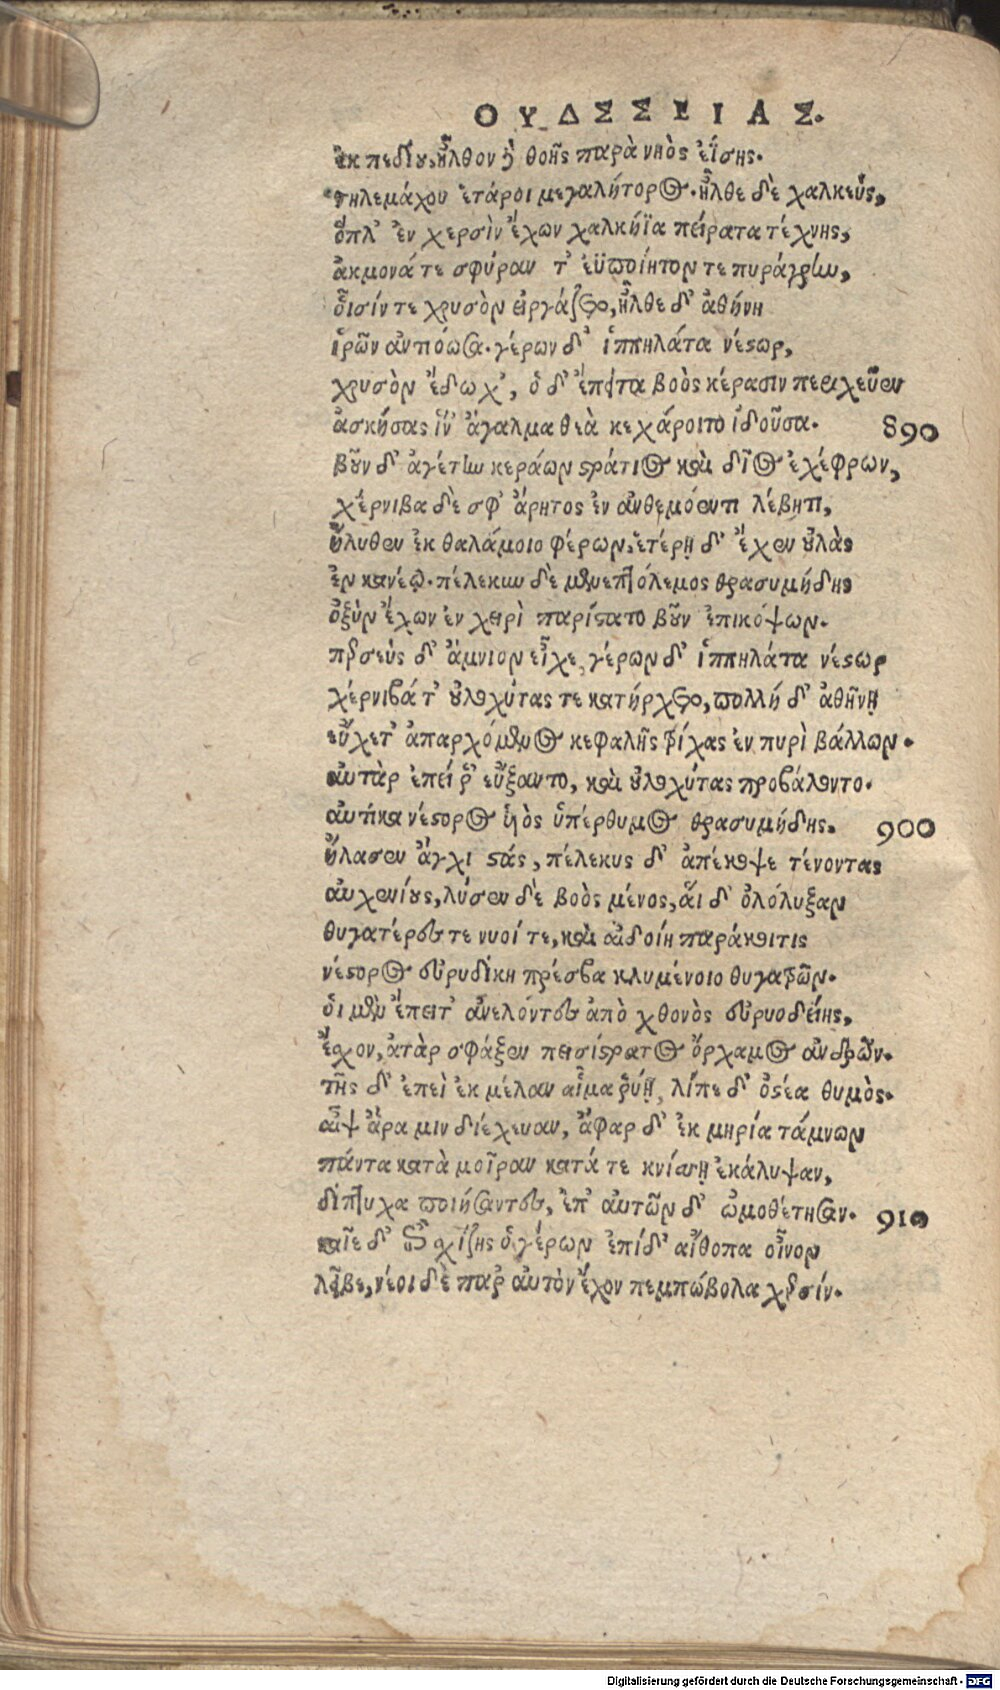 ΟΥΔΣΣΕΙΑΣ.
ἐκ πεδίου, ἦλθον δὲ θοῆς παρὰ νηὸς ἐΐσης.
τηλεμάχου ἑτάροι μεγαλήτορος. ἦλθε δὲ χαλκεύς,
ὅπλ' ἐν χερσὶν ἔχων χαλκήϊα πείρατα τέχνης,
ἀκμονά τε σφύραν τ' ἐϋποίητον τε πυράγρην,
οἷσίν τε χρυσὸν εἰργάζετο, ἦλθε δ' ἀθήνη
ἱρῶν ἀντιόωσα. γέρων δ' ἱππηλάτα νέστωρ,
χρυσὸν ἔδωχ', ὁ δ' ἔπειτα βοὸς κέρασιν περιχεῦεν
ἀσκήσας ἵν' ἄγαλμα θεὰ κεχάροιτο ἰδοῦσα. 890
βοῦν δ' ἀγέτην κεράων στράτιος καὶ δῖος ἐχέφρων,
χέρνιβα δὲ σφ' ἄρητος ἐν ἀνθεμόεντι λέβητι,
ἤλυθεν ἐκ θαλάμοιο φέρων, ἑτέρῃ δ' ἔχεν οὐλὰς
ἐν κανέῳ. πέλεκυν δὲ μενεπτόλεμος θρασυμήδης
ὀξὺν ἔχων ἐν χειρὶ παρίστατο βοῦν ἐπικόψων.
περσεὺς δ' ἄμνιον εἶχε, γέρων δ' ἱππηλάτα νέστωρ
χέρνιβά τ' οὐλοχύτας τε κατήρχετο, πολλή δ' ἀθῆνῃ
εὔχετ' ἀπαρχόμενος κεφαλῆς τρίχας ἐν πυρὶ βάλλων.
αὐτὰρ ἐπεί ῥ' εὔξαντο, καὶ οὐλοχύτας προβάλοντο.
αὐτίκα νέστορος ὑιὸς ὑπέρθυμος θρασυμήδης. 900
ἤλασεν ἄγχι στάς, πέλεκυς δ' ἀπέκοψε τένοντας
αὐχενίους, λύσεν δὲ βοὸς μένος, αἱ δ' ὀλόλυξαν
θυγατέρες τε νυοί τε, καὶ αἰδοίη παράκοιτις
νέστορος εὐρυδίκη πρέσβα κλυμένοιο θυγατρῶν.
οἱ μὲν ἔπειτ' ἀνελόντες ἀπὸ χθονὸς εὐρυοδείης,
ἔσχον, ἀτὰρ σφάξεν πεισίστρατος ὄρχαμος ἀνδρῶν.
τῆς δ' ἐπεὶ ἐκ μέλαν αἷμα ῥύη, λίπε δ' ὀστέα θυμὸς.
αἶψ ἄρα μιν διέχευαν, ἄφαρ δ' ἐκ μηρία τάμνων
πάντα κατὰ μοῖραν κατά τε κνίσῃ ἐκάλυψαν,
δίπτυχα ποιήσαντες, ἐπ' αὐτῶν δ' ὠμοθέτησαν. 910
καῖε δ' ἐπὶ σχίζης ὁ γέρων ἐπὶ δ' αἴθοπα οἶνον
λεῖβε, νέοι δὲ παρ αὐτὸν ἔχον πεμπώβολα χερσίν.
Digitalisierung gefördert durch die Deutsche Forschungsgemeinschaft - DFG